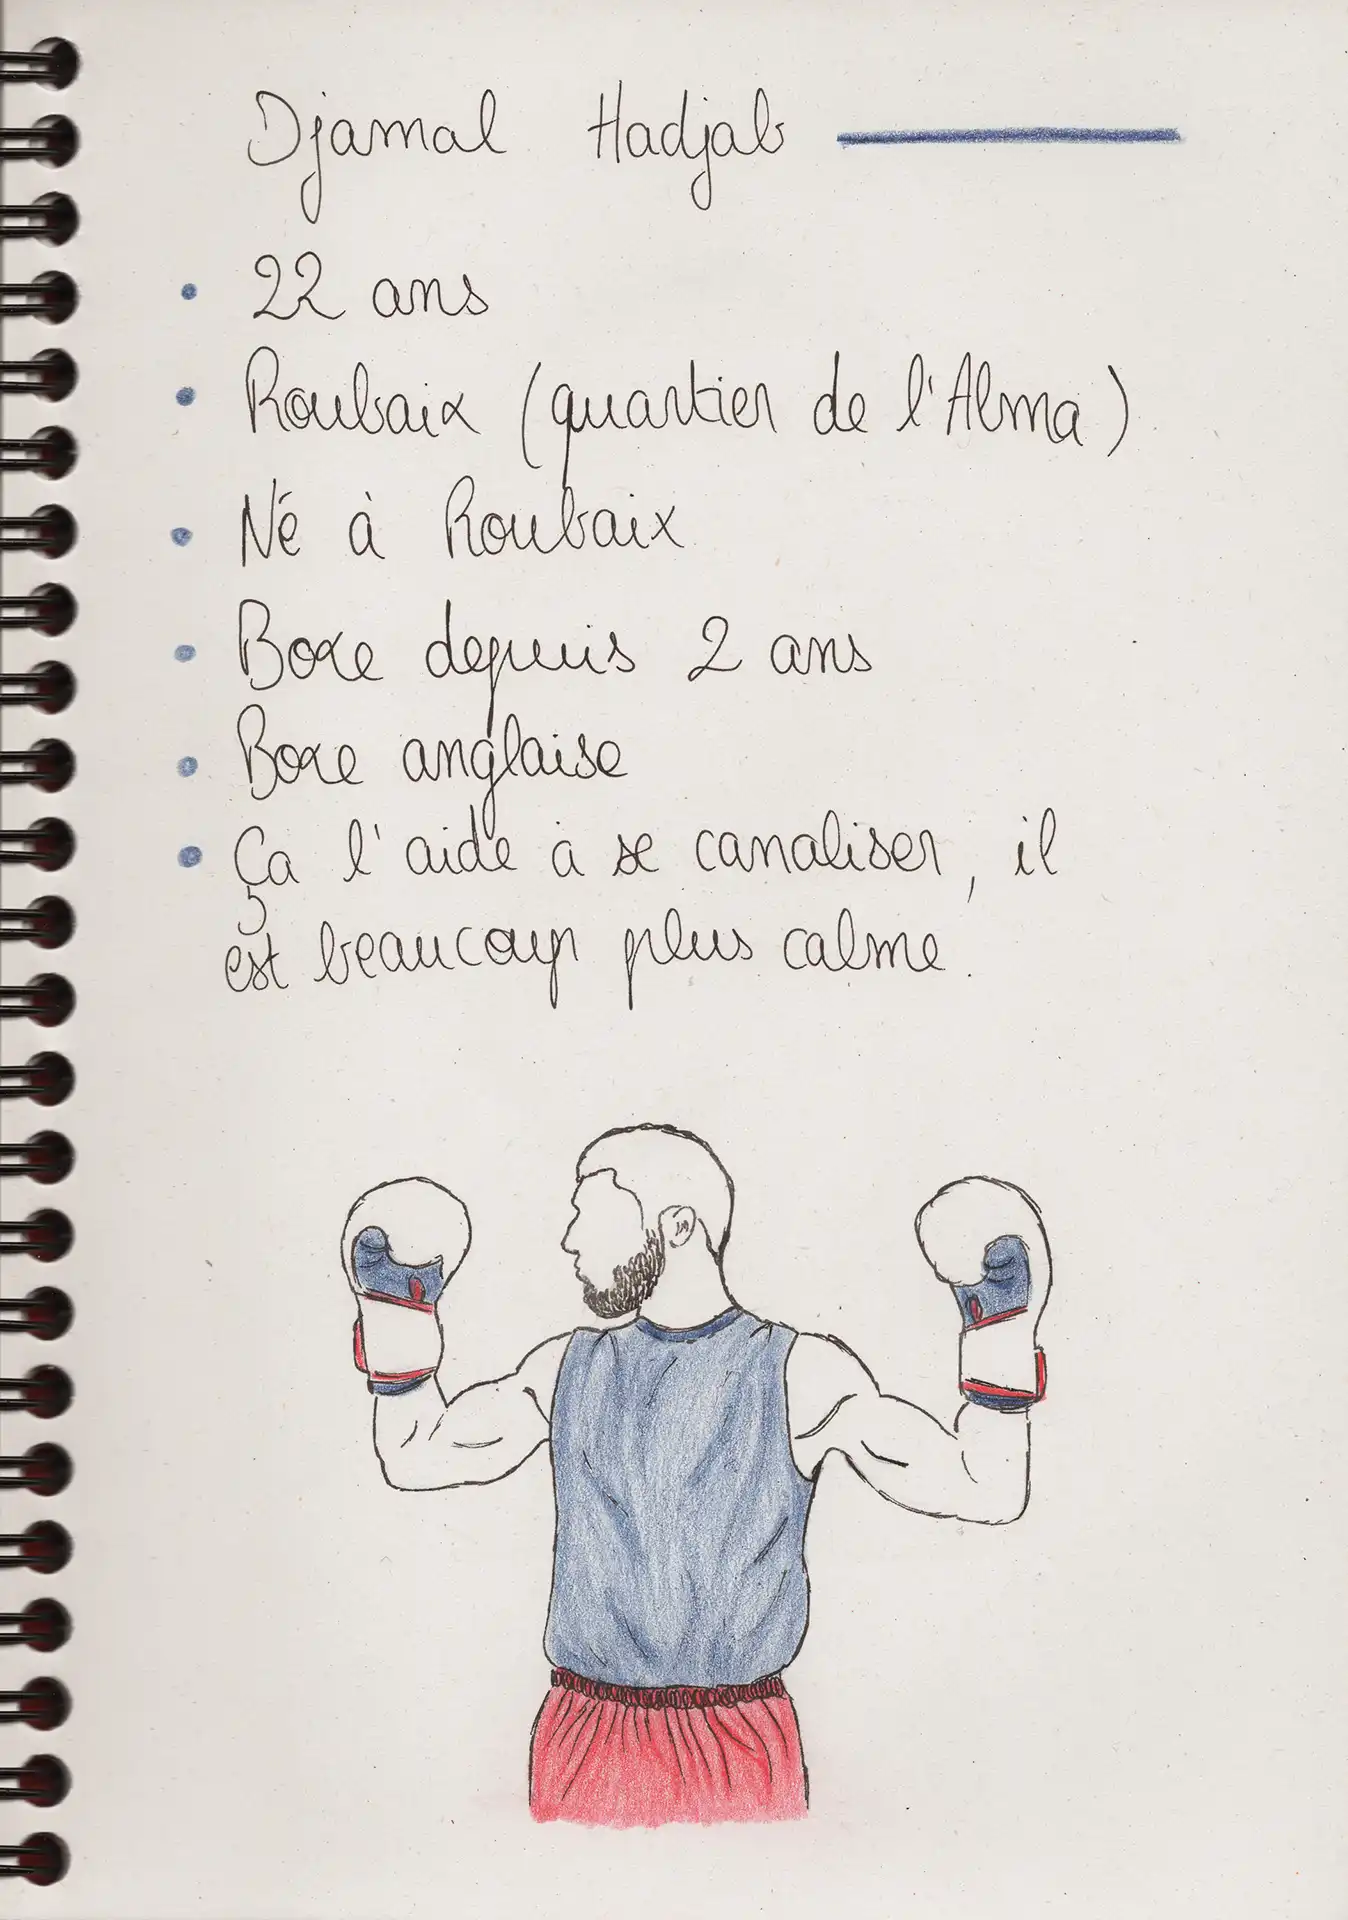 Djamal Hadjab
22 ans
Roubaix (quartier de l'Alma)
Né à Roubaix
Boxe depuis 2 ans
Boxe anglaise
Ça l'aide à se canaliser, il
est beaucoup plus calme.